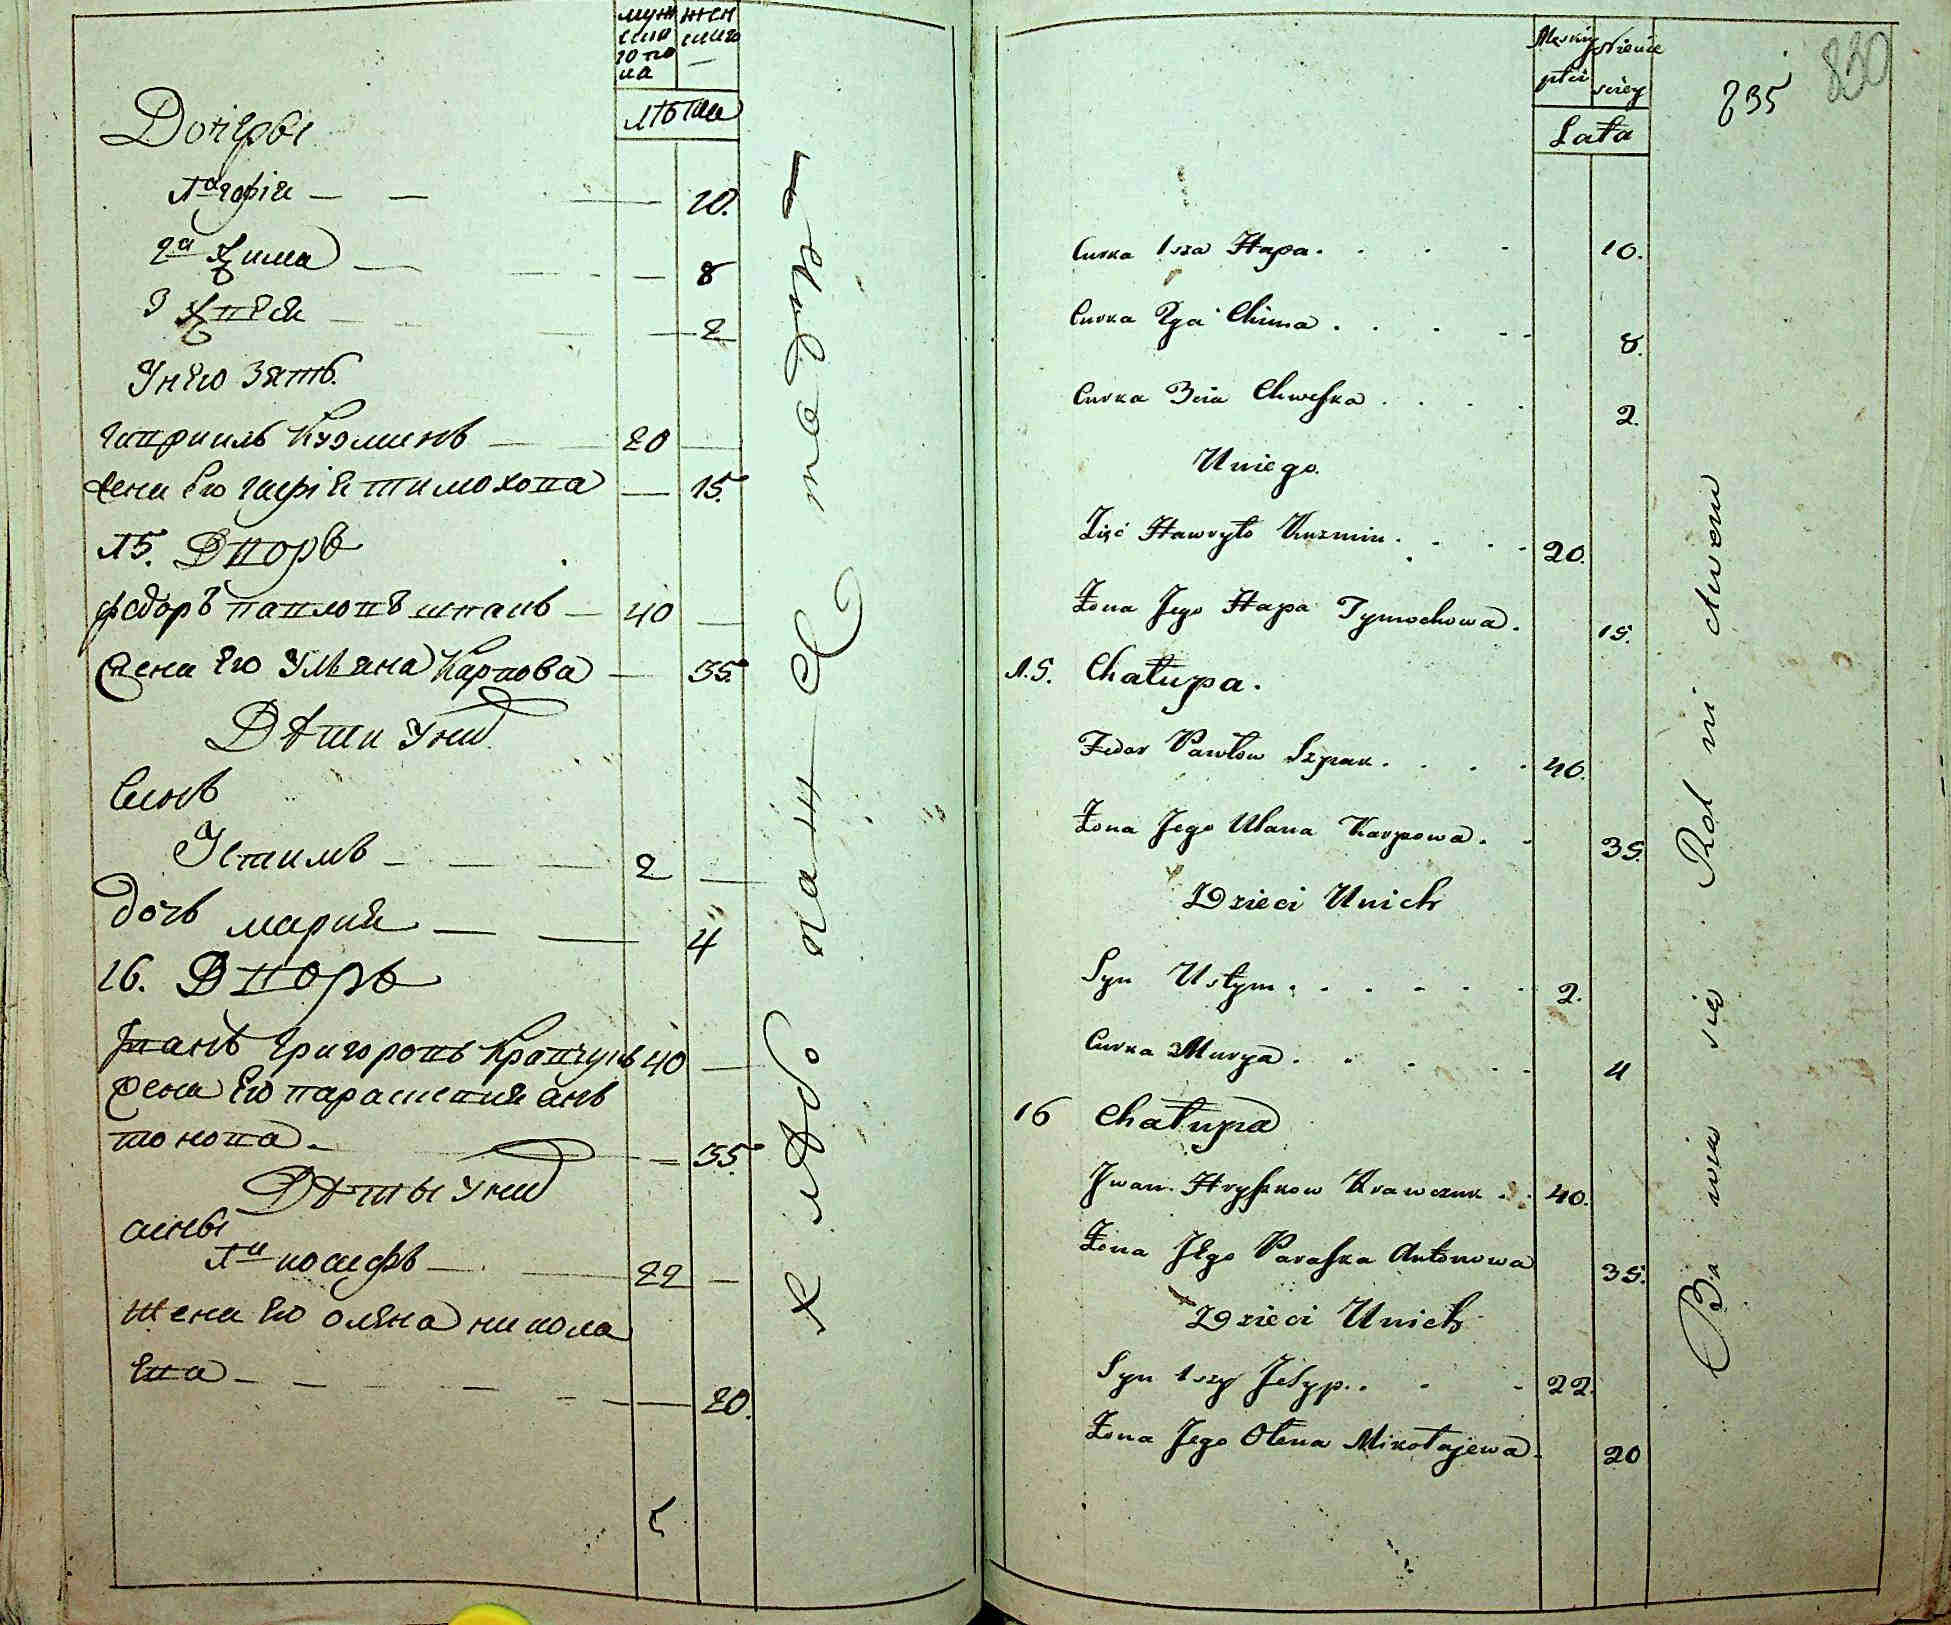 муж жен
ска ского
го по
ла
лѣта
Дочеры
1а гафія 10.
2а Хима 8
3 Хвеся 2
У него зять
гавриилъ Кузминъ 20
жена Его гафія тимохова 15.
15. Дворъ
федоръ павловъ шпакъ 40
жена Его Уляна Карпова 35.
Дѣти у них
Синъ
Устимъ 2
дочь мария 4
16. Дворъ
Иванъ григоровъ Кравчукъ 40
жена Его параскевия ан
тонова 35.
Дѣты у них
сины
1й иосифъ 22
жена Его оляна никола
ева 20.
хлѣбопашествуют
Męskiej Żeńs
płci kiej
Lata
835
830
Curka 1sza Hapa 10.
Curka 2ga Chima 8.
Curka 3cia Chweska 2.
Uniego.
Zięć Hawryło Kuzmin 20.
Żona Jego Hapa Tymochowa 15.
15. Chałupa.
Fedor Pawłow Szpak 40.
Żona Jego Ulana Karpowa 35.
Dzieci Unich
Syn Ustym 2.
Curka Marya 4
16 Chałupa
Jwan Hryszkow Krawczuk 40.
Żona Jego Paraska Antonowa 35.
Dzieci Unich
Syn 1szy Jósyp 22.
Żona Jego Ołena Mikołajewa 20
Bawią się Rolnictwem